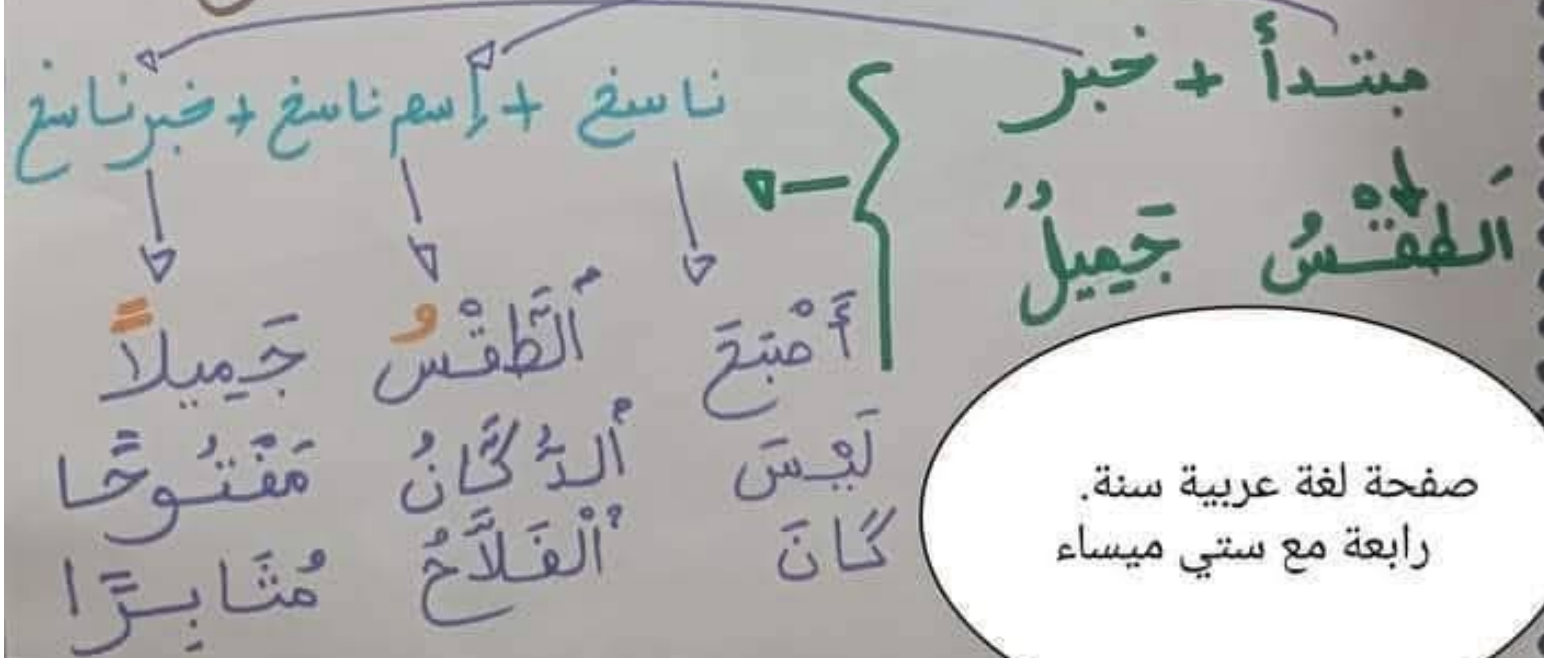 مبتدأ + خبر
ناسخ + إسم ناسخ + خبر ناسخ
اَلطَقْسُ جَمِيلٌ
أَصْبَحَ اُلَّطَقْسُ جَمِيلاً
لَيْسَ اُلدُّكَّانُ مَفْتُوحًا
كَانَ اُلْفَلاَّحُ مُثَابِرًا
صفحة لغة عربية سنة.
رابعة مع ستي ميساء